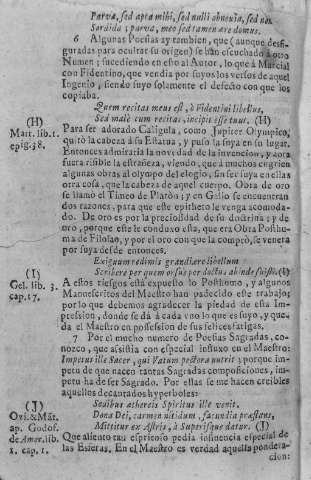 Parva, sed apta mihi, sed nulli obnoxia, sed non
Sordida; parva, meo sed tamen ære domus.
6 Algunas Poesias ay tambien, que (aunque desfi-
guradas para ocultar su origen) se han escuchado à otro
Numen; sucediendo en esto al Autor, lo que à Marcial
con Fidentino, que vendia por suyos los versos de aquel
Ingenio, siendo suyo solamente el defecto con que los
copiaba.
Quem recitas meus est, ò Fidentini libellus,
Sed malè cum recitas, incipit esse tuus. (H)
(H)
Mart. lib. 1.
epig. 38.
Para ser adorado Caligula, como Jupiter Olympico,
quitò la cabeza à su Estatua, y puso la suya en su lugar.
Entonces admiraria la novedad de la invencion, y aora
fuera risible la estrañeza, viendo, que à muchos engrien
algunas obras al olympo del elogio, sin ser suya en ellas
otra cosa, que la cabeza de aquel cuerpo. Obra de oro
se llamò el Timeo de Platòn; y en Gelio se encuentran
dos razones, para que este epitheto le venga acomoda-
do. De oro es por la preciosidad de su doctrina; y de
oro, porque este le conduxo esta, que era Obra Posthu-
ma de Filolao, y por el oro con que la comprò, se venera
por suya desde entonces.
Exiguum redimis grandi ære libellum
Scribere per quem orsus per doctus ab inde fuisti. (I)
(I)
Gel. lib. 3.
cap. 17.
A estos riesgos està expuesto lo Posthumo, y algunos
Manuscritos del Maestro han padecido este trabajo;
por lo que debemos agradecer la piedad de esta Im-
pression, donde se dà à cada uno lo que es suyo, y que-
da el Maestro en possession de sus felices fatigas.
7 Por el mucho numero de Poesias Sagradas, co-
nozco, que assistia con especial influxo en el Maestro:
Impetus ille Sacer, qui Vatum pectora nutrit; porque im-
petu de que nacen tantas Sagradas composiciones, im-
petu ha de ser Sagrado. Por ellas se me hacen creibles
aquellos decantados hyperboles:
Sedibus æthereis Spiritus ille venit.
Dona Dei, carmen nitidum, facundia præstans,
Mittitur ex Astris, à Superisque datur. (J)
(J)
Ovi. & Màt.
ap. Godof.
de Amor. lib.
1. cap. 1.
Que aliento tan espritoso pedia influencia especial de
las Esferas. En el Maestro es verdad aquella pondera-
cion: